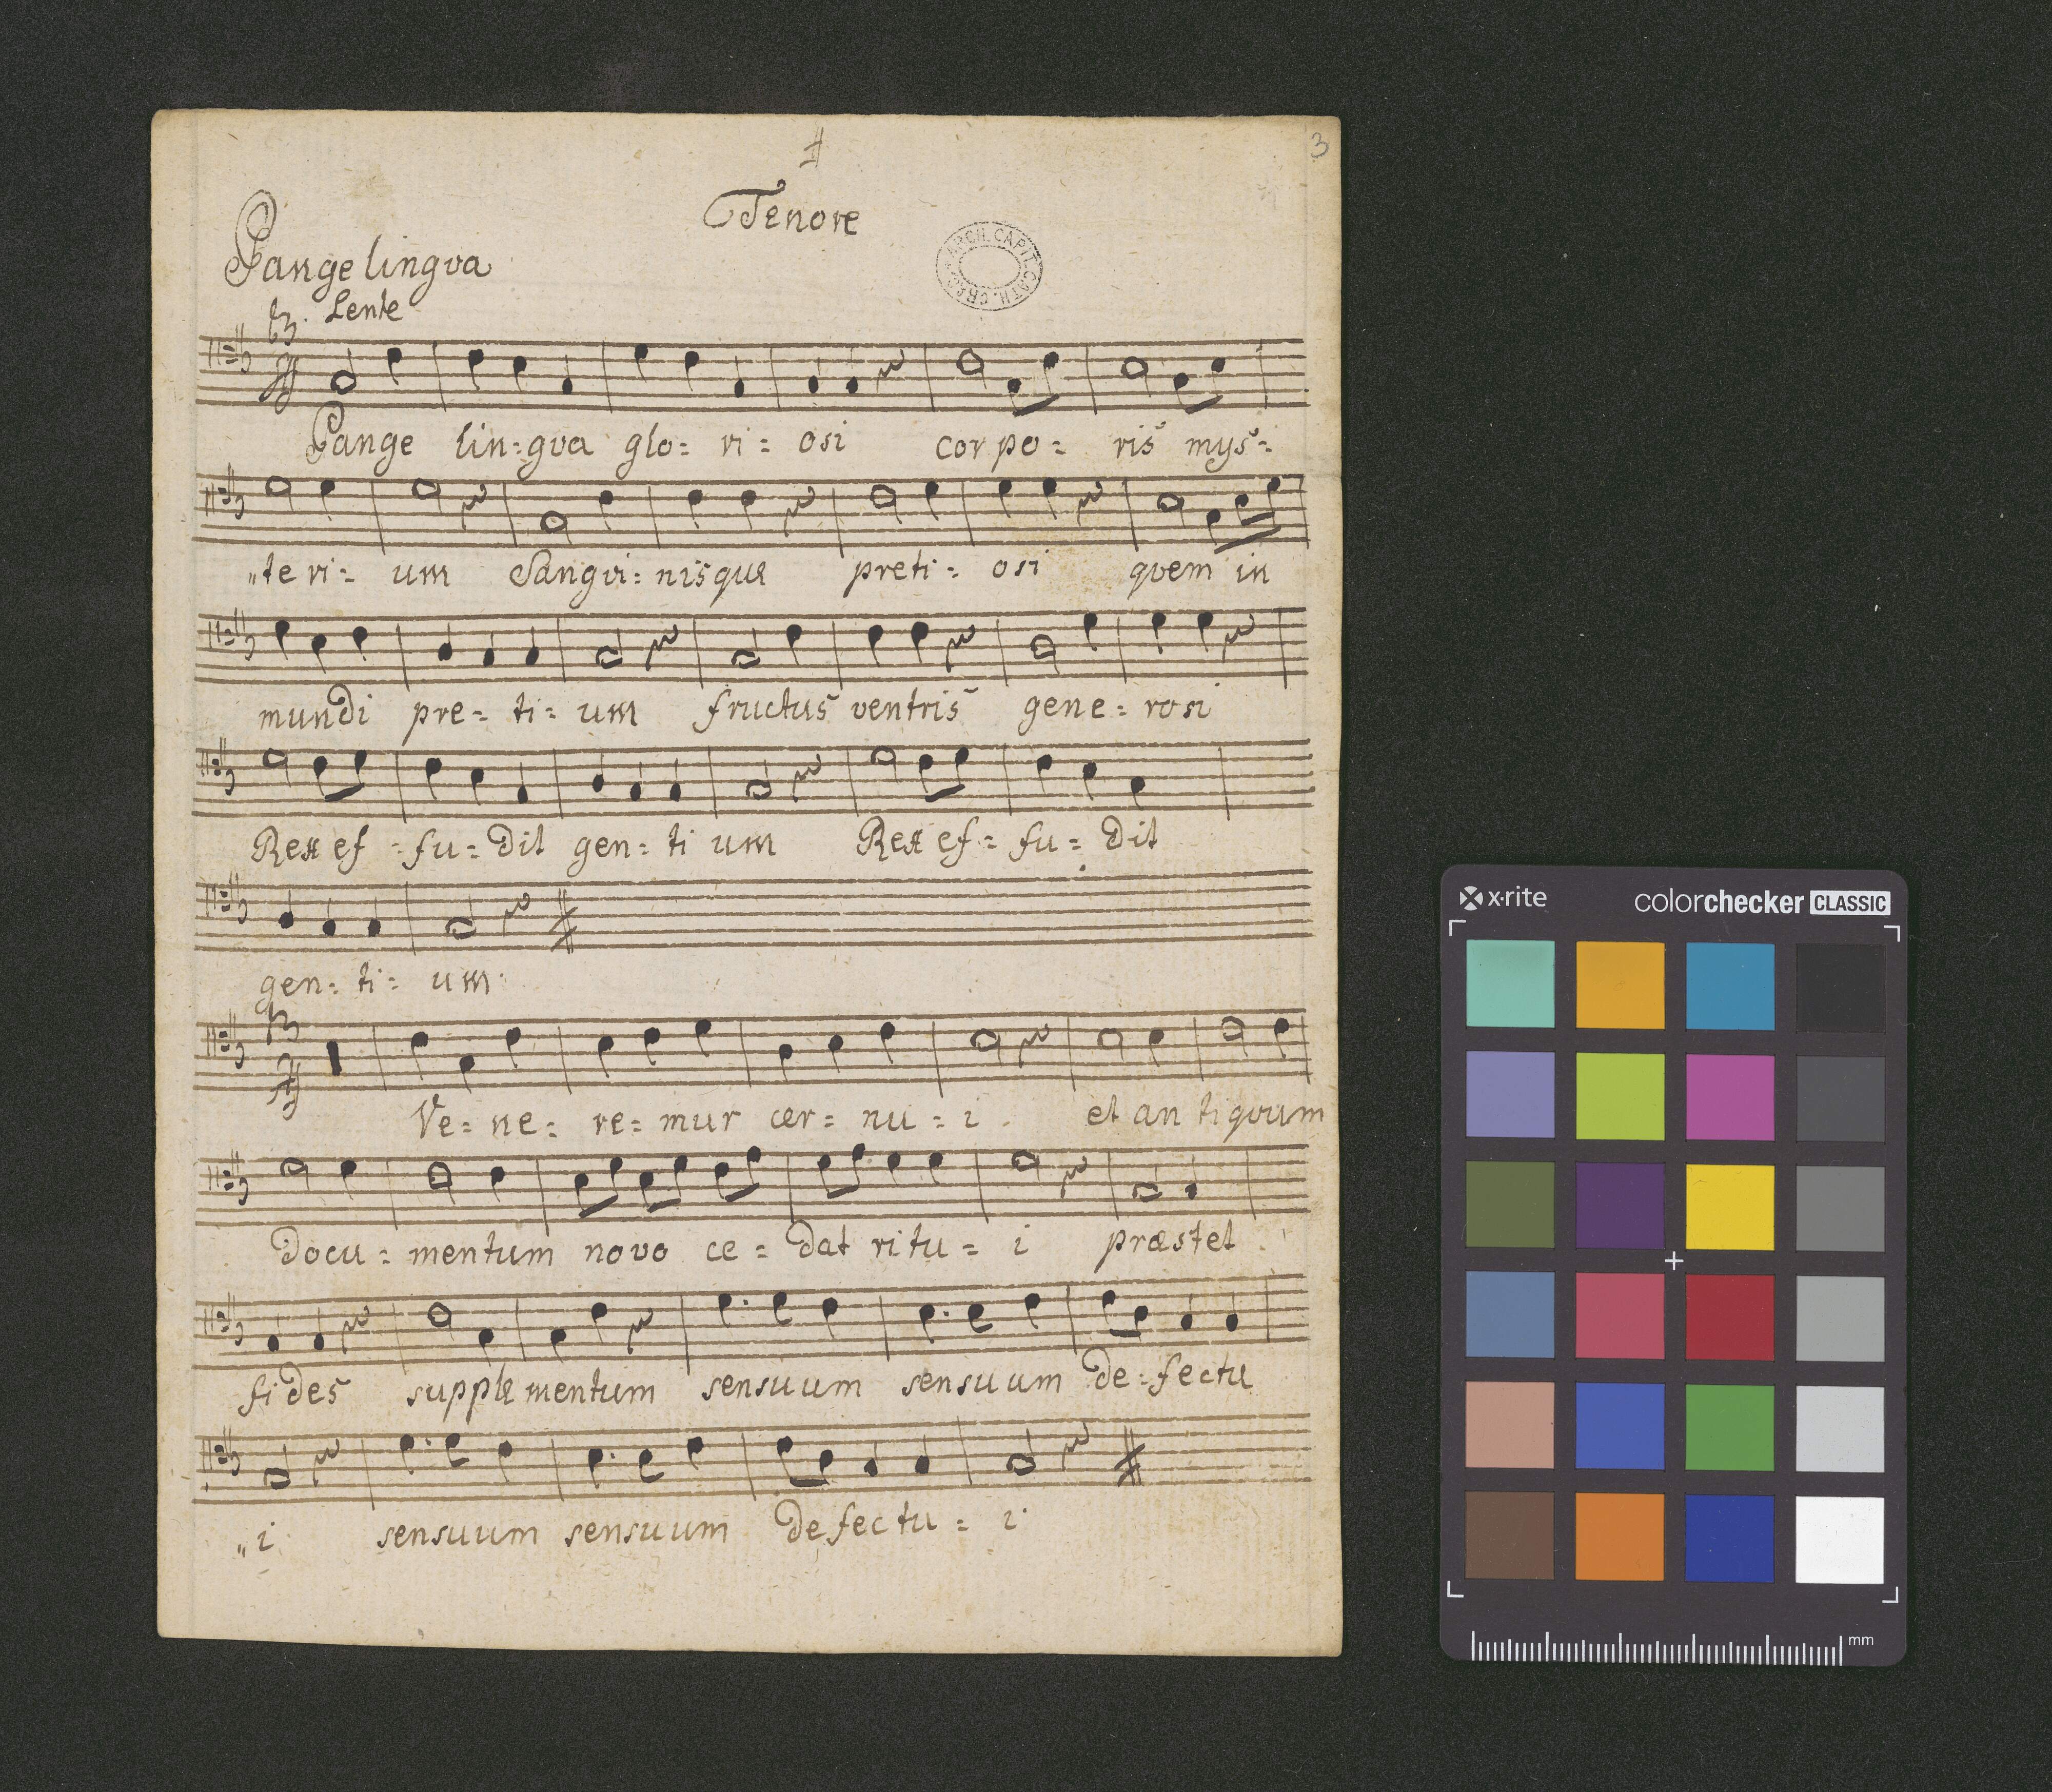 3
Tenore
ARCH. CAPIT. CATH. CRAC.
Pange lingva
Lente
Pange lin=gva glo= ri= osi corpo= ris mys=
"te ri= um Sangvi= nisque preti= osi qvem in
mundi pre= ti= um fructus ventris gene= rosi
Rex ef =fu= dit gen= ti um Rex ef= fu= dit
gen= ti= um
Ve= ne= re= mur cer= nu= i. et an tiqvum
Docu= mentum novo ce= dat ritu= i præstet
fides supple mentum sensuum sensuum de=fectu
"i sensuum sensuum defectu= i
x·rite colorchecker CLASSIC
mm